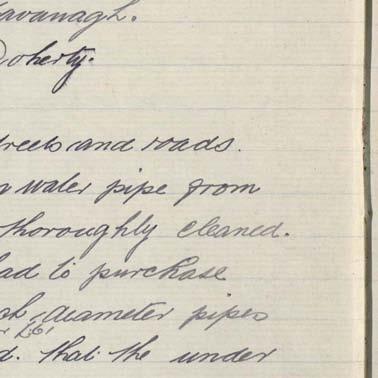 avanagh.
Doherty.
treets and roads.
water pipe from
thoroughly cleaned.
ad to purchase
diameter pipes
that the under